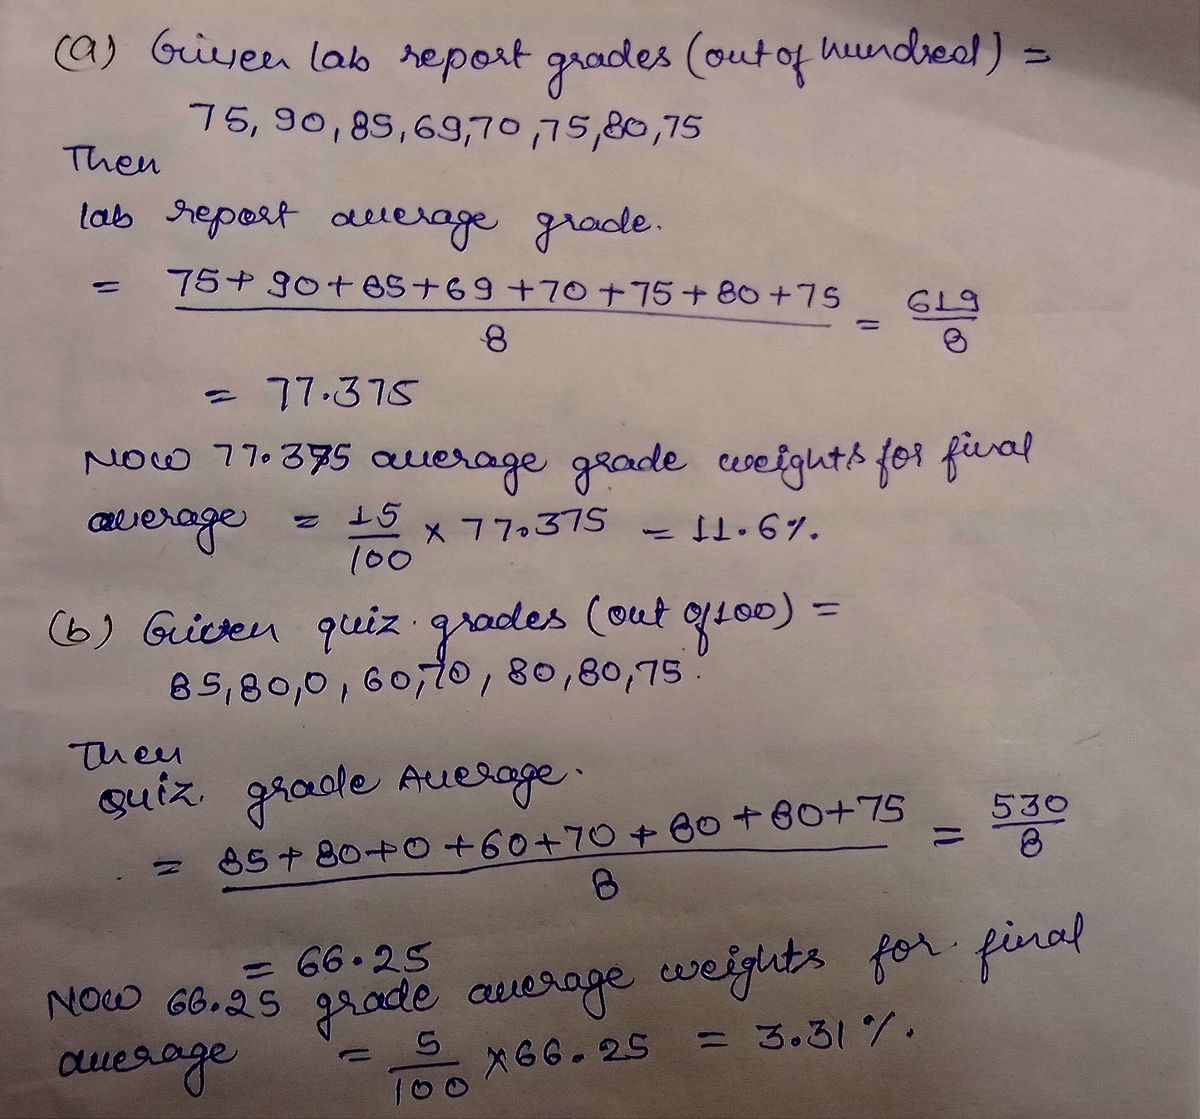 (a) Given lab report grades (out of hundred) =
75, 90, 85, 69, 70, 75, 80, 75
Then
lab report average grade.
= 75 + 90 + 85 + 69 + 70 + 75 + 80 + 75 / 8 = 619 / 8
= 77.375
Now 77.375 average grade weights for final
average = 15/100 × 77.375 = 11.6%.
(b) Given quiz grades (out of 100) =
85, 80, 0, 60, 70, 80, 80, 75.
Then
Quiz. grade Average.
= 85 + 80 + 0 + 60 + 70 + 80 + 80 + 75 / 8 = 530 / 8
= 66.25
Now 66.25 grade average weights for final
average = 5/100 × 66.25 = 3.31%.